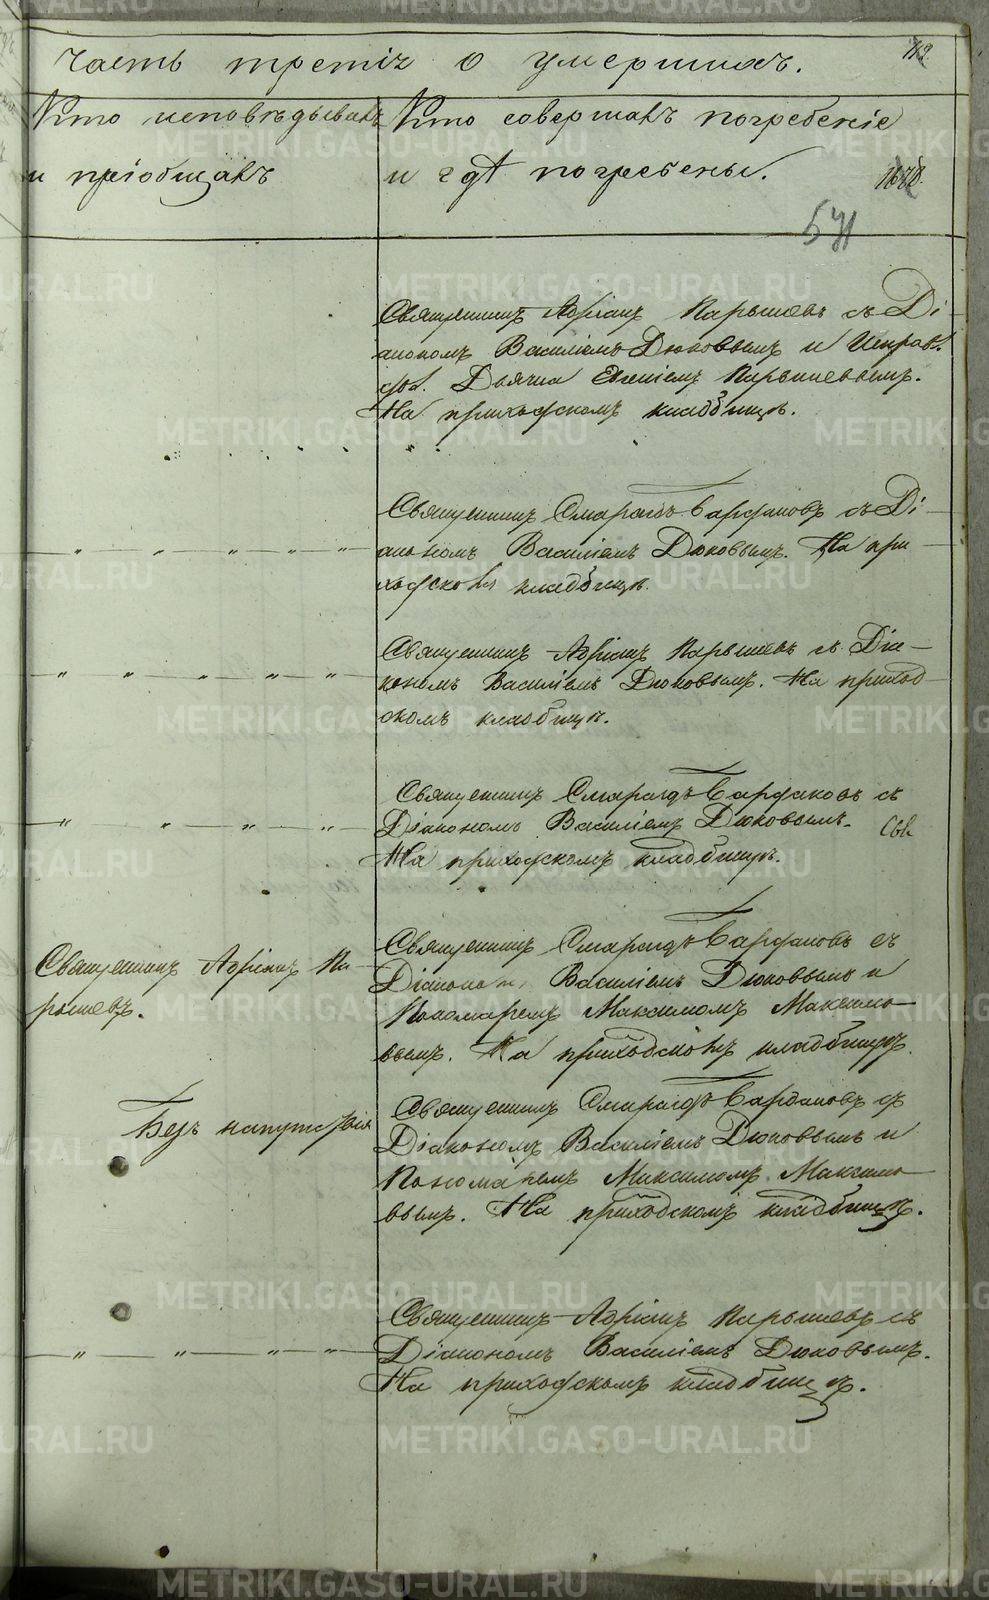 часть третія о умершихъ.
Кто исповѣдывалъ
и пріобщалъ
Кто совершалъ погребеніе
и гдѣ погребены.
571
Священникъ Адріанъ Парышевъ съ Ді-
акономъ Василіемъ Дюковымъ и Исправл.
дол. Дьячка Евгеніемъ Парышевымъ.
На приходскомъ кладбищѣ.
Священникъ Смарагдъ Бардаковъ съ Ді-
акономъ Василіемъ Дюковымъ. На при-
ходскомъ кладбищѣ.
Священникъ Адріанъ Парышевъ съ Діа-
кономъ Василіемъ Дюковымъ. На приход-
скомъ кладбищѣ.
Священникъ Смарагдъ Бардаковъ съ
Діакономъ Василіемъ Дюковымъ.
На приходскомъ кладбищѣ.
Священникъ Адріанъ Па-
рышевъ.
Священникъ Смарагдъ Бардаковъ съ
Діакономъ Василіемъ Дюковымъ и
Пономаремъ Максимомъ Максимо-
вымъ. На приходскомъ кладбищѣ.
Безъ напутствія
Священникъ Смарагдъ Бардаковъ съ
Діакономъ Василіемъ Дюковымъ и
Пономаремъ Максимомъ Максимо-
вымъ. На приходскомъ кладбищѣ.
Священникъ Адріанъ Парышевъ съ
Діакономъ Василіемъ Дюковымъ.
На приходскомъ кладбищѣ.
METRIKI.GASO-URAL.RU